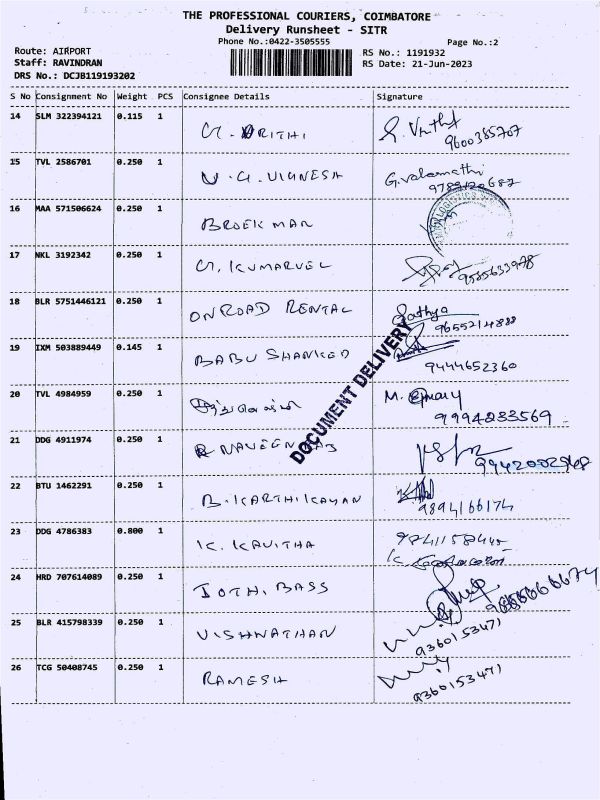 THE PROFESSIONAL COURIERS, COIMBATORE
Delivery Runsheet - SITR
Phone No.:0422-3505555 Page No.:2
Route: AIRPORT RS No.: 1191932
Staff: RAVINDRAN RS Date: 21-Jun-2023
DRS No.: DCJB119193202
S No Consignment No Weight PCS Consignee Details Signature
14 SLM 322394121 0.115 1 9600385707
15 TVL 2586701 0.250 1 V. G. VIGNESH G.Valarmathi
16 MAA 571506624 0.250 1 BROEKMAN
17 NKL 3192342 0.250 1 G. KUMARVEL 9585633978
18 BLR 5751446121 0.250 1 ON ROAD RENTAL Sathya
9655214888
19 IXM 503889449 0.145 1 BABU SHANKED
9444652360
20 TVL 4984959 0.250 1 M.
9994233569
21 DDG 4911974 0.250 1 NAVEEN
22 BTU 1462291 0.250 1 B. KARTHIKAYAN
9894166174
23 DDG 4786383 0.800 1 K. KAVITHA
24 HRD 707614089 0.250 1 JOTHI BASS
25 BLR 415798339 0.250 1 VISHNATHAN 9360153471
26 TCG 50408745 0.250 1 RAMESH 9360153471
DOCUMENT DELIVERY